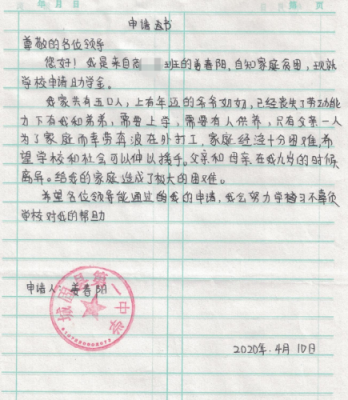 年 月 日
第 页
申请书
尊敬的各位领导
您好！我是来自高 班的姜春阳，自知家庭贫困，现就
学校申请助学金。
我家共有五口人，上有年迈的爷爷奶奶，已经丧失了劳动能
力下有我和弟弟，需要上学，需要有人供养，只有父亲一人
为了家庭而辛劳奔波在外打工，家庭经济十分困难，希
望学校和社会可以伸以援手。父亲和母亲在我九岁的时候
离异。给我的家庭造成了极大的困难。
希望各位领导能通过我的申请，我会努力学习不辜负
学校对我的帮助
申请人 姜春阳
第一中学
2020年 4月 10日